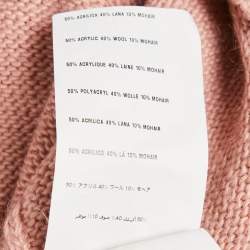 50% ACRILICO 40% LANA 10% MOHAIR
50% ACRYLIC 40% WOOL 10% MOHAIR
50% ACRYLIQUE 40% LAINE 10% MOHAIR
50% POLYACRYL 40% WOLLE 10% MOHAIR
50% ACRILICA 40% LANA 10% MOHAIR
50% ACRÍLICO 40% LÃ 10% MOHAIR
50% アクリル 40% ウール 10% モヘア
50% أكريليك 40% صوف 10% موهير